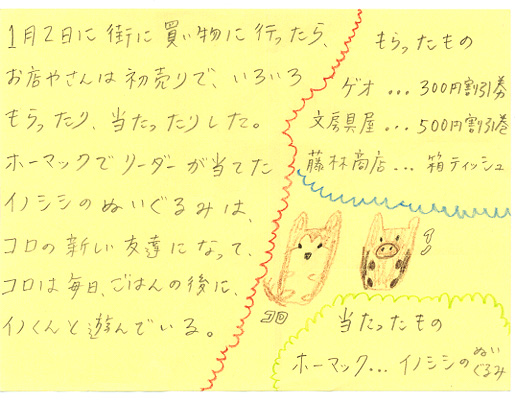 1月2日に街に買い物に行ったら、
お店やさんは初売りで、いろいろ
もらったり、当たったりした。
ホーマックでリーダーが当てた
イノシシのぬいぐるみは、
コロの新しい友達になって、
コロは毎日、ごはんの後に、
イノくんと遊んでいる。
もらったもの
ゲオ...300円割引券
文房具屋...500円割引券
藤林商店...箱ティッシュ
コロ
当たったもの
ホーマック...イノシシのぬいぐるみ